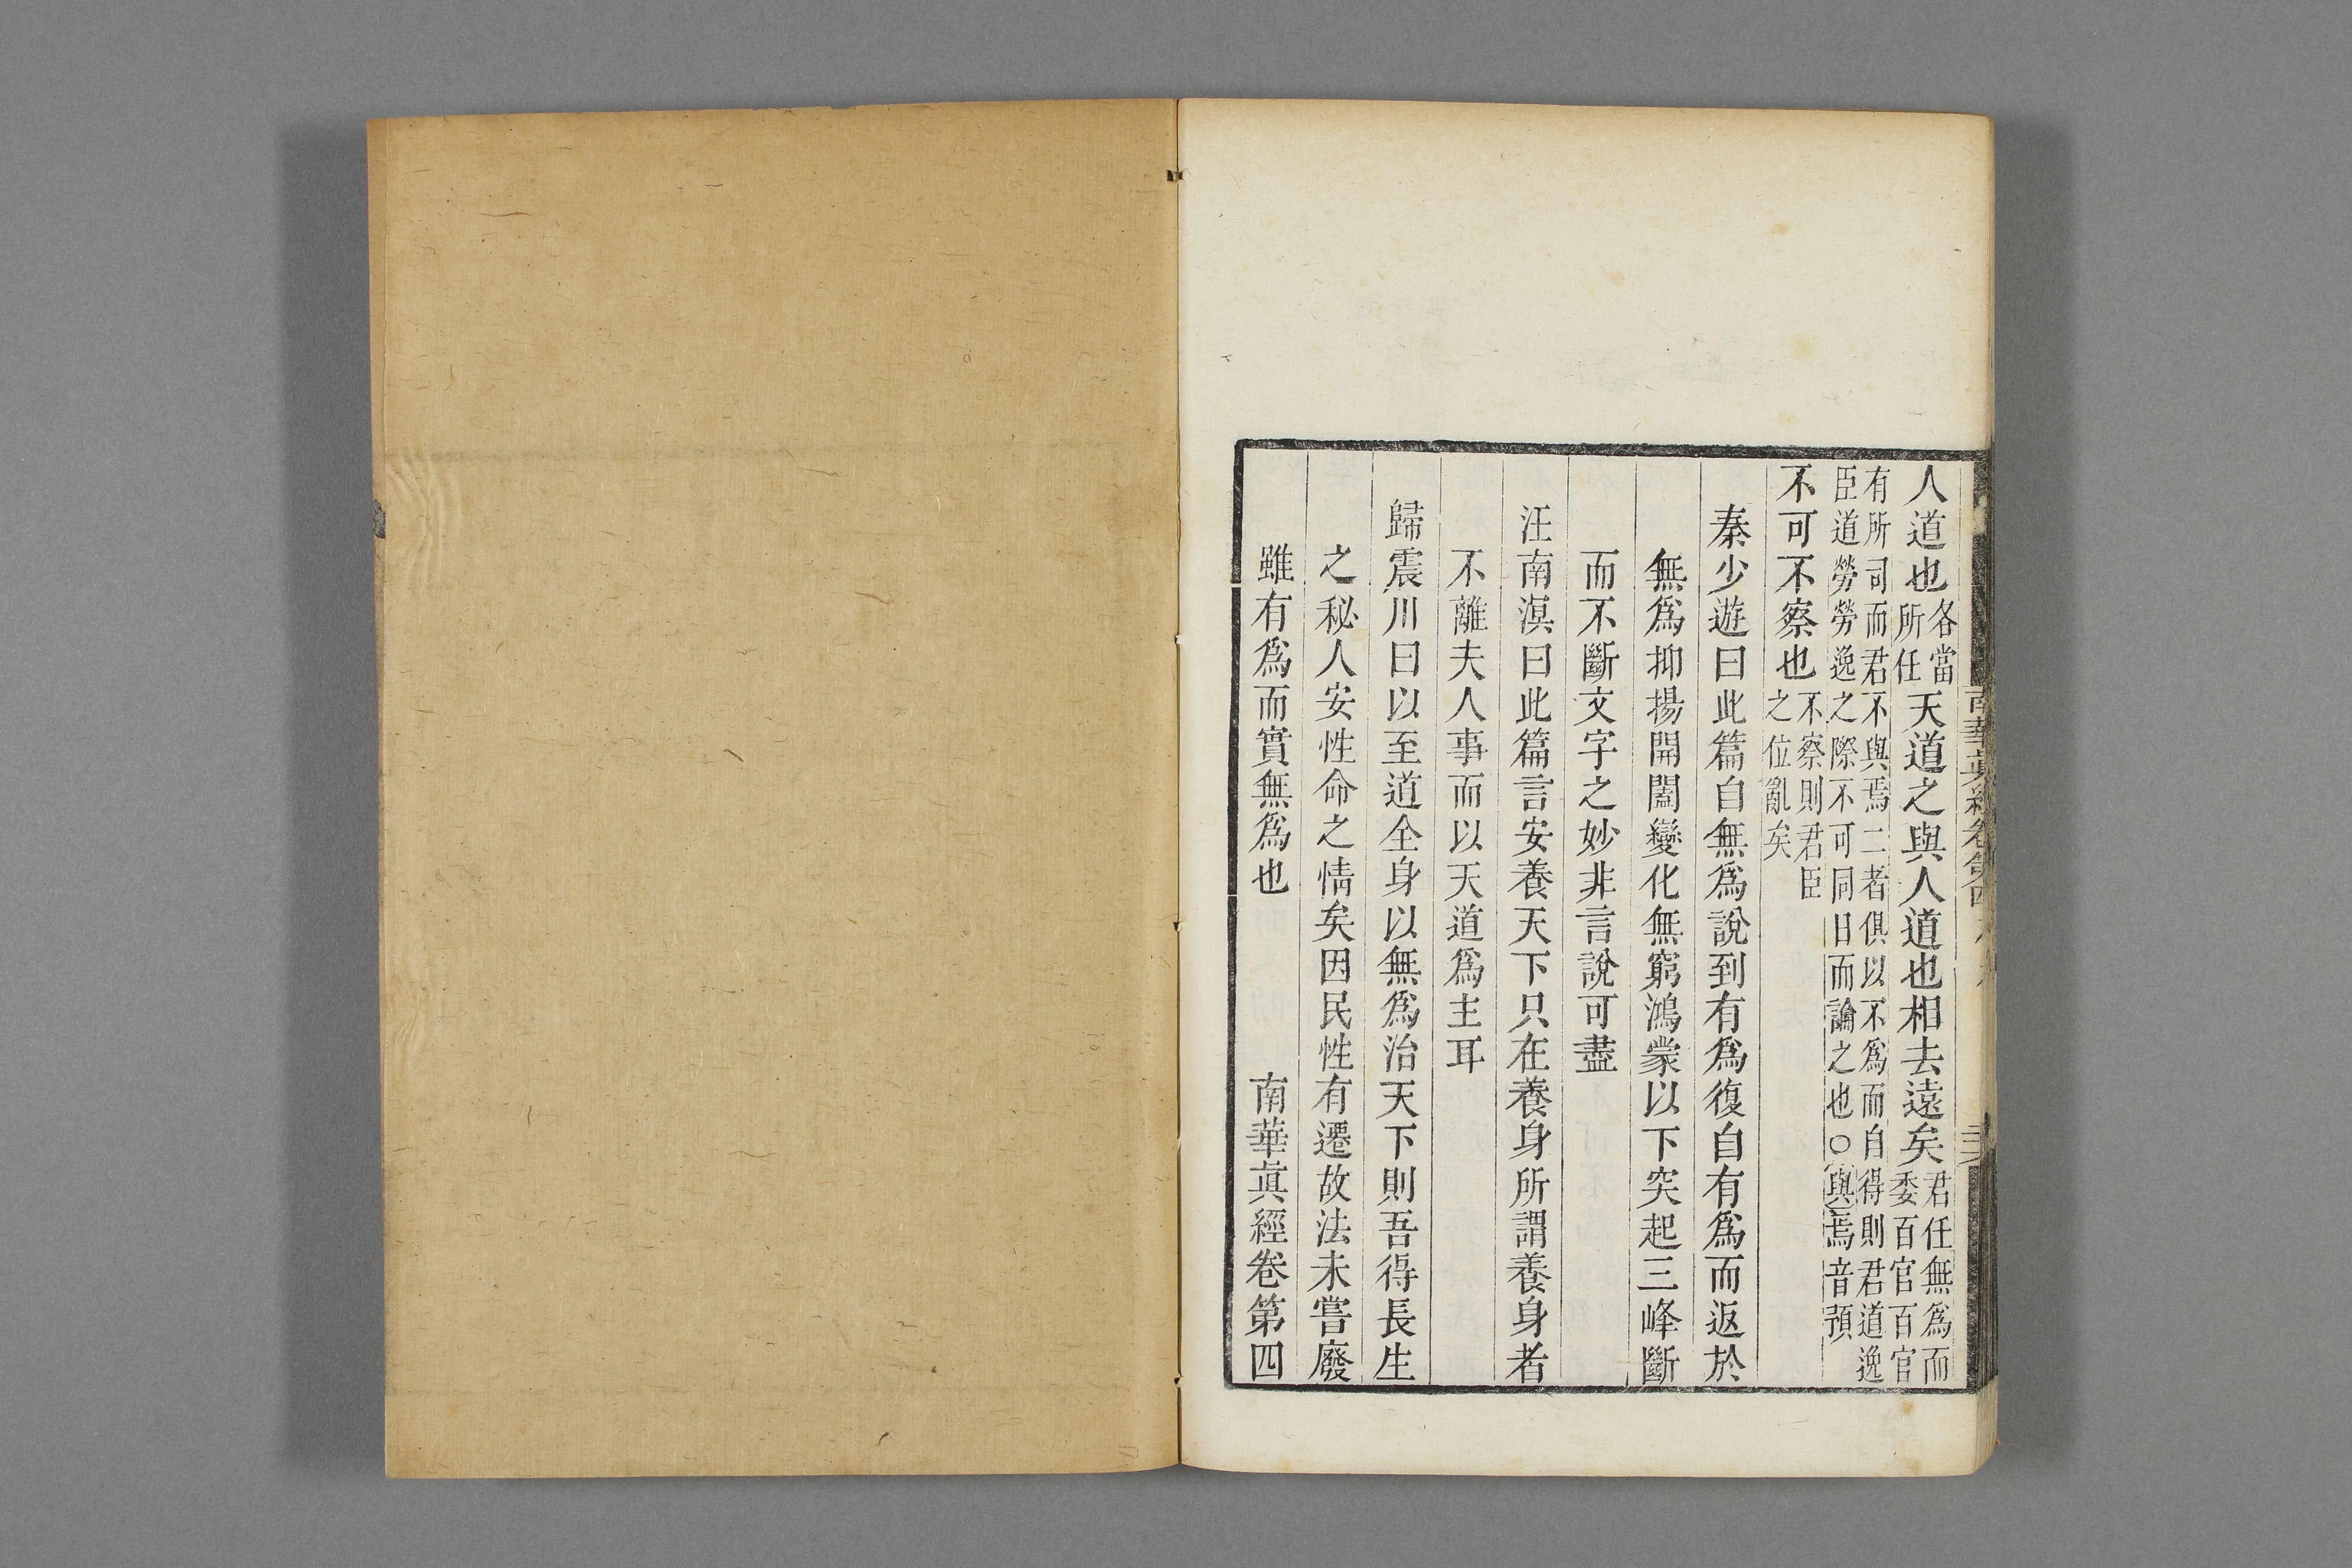 人道也各當所任天道之與人道也相去遠矣君任無爲而委百官百官
有所司而君不與焉二者俱以不爲而自得則君道逸
臣道勞勞逸之際不可同日而論之也○與焉音預
不可不察也不察則君臣之位亂矣
秦少遊曰此篇自無爲說到有爲復自有爲而返於
無爲抑揚開闔變化無窮鴻蒙以下突起三峰斷
而不斷文字之妙非言說可盡
汪南溟曰此篇言安養天下只在養身所謂養身者
不離夫人事而以天道爲主耳
歸震川曰以至道全身以無爲治天下則吾得長生
之秘人安性命之情矣因民性有遷故法未嘗廢
雖有爲而實無爲也
南華眞經卷第四
南華眞經卷第四